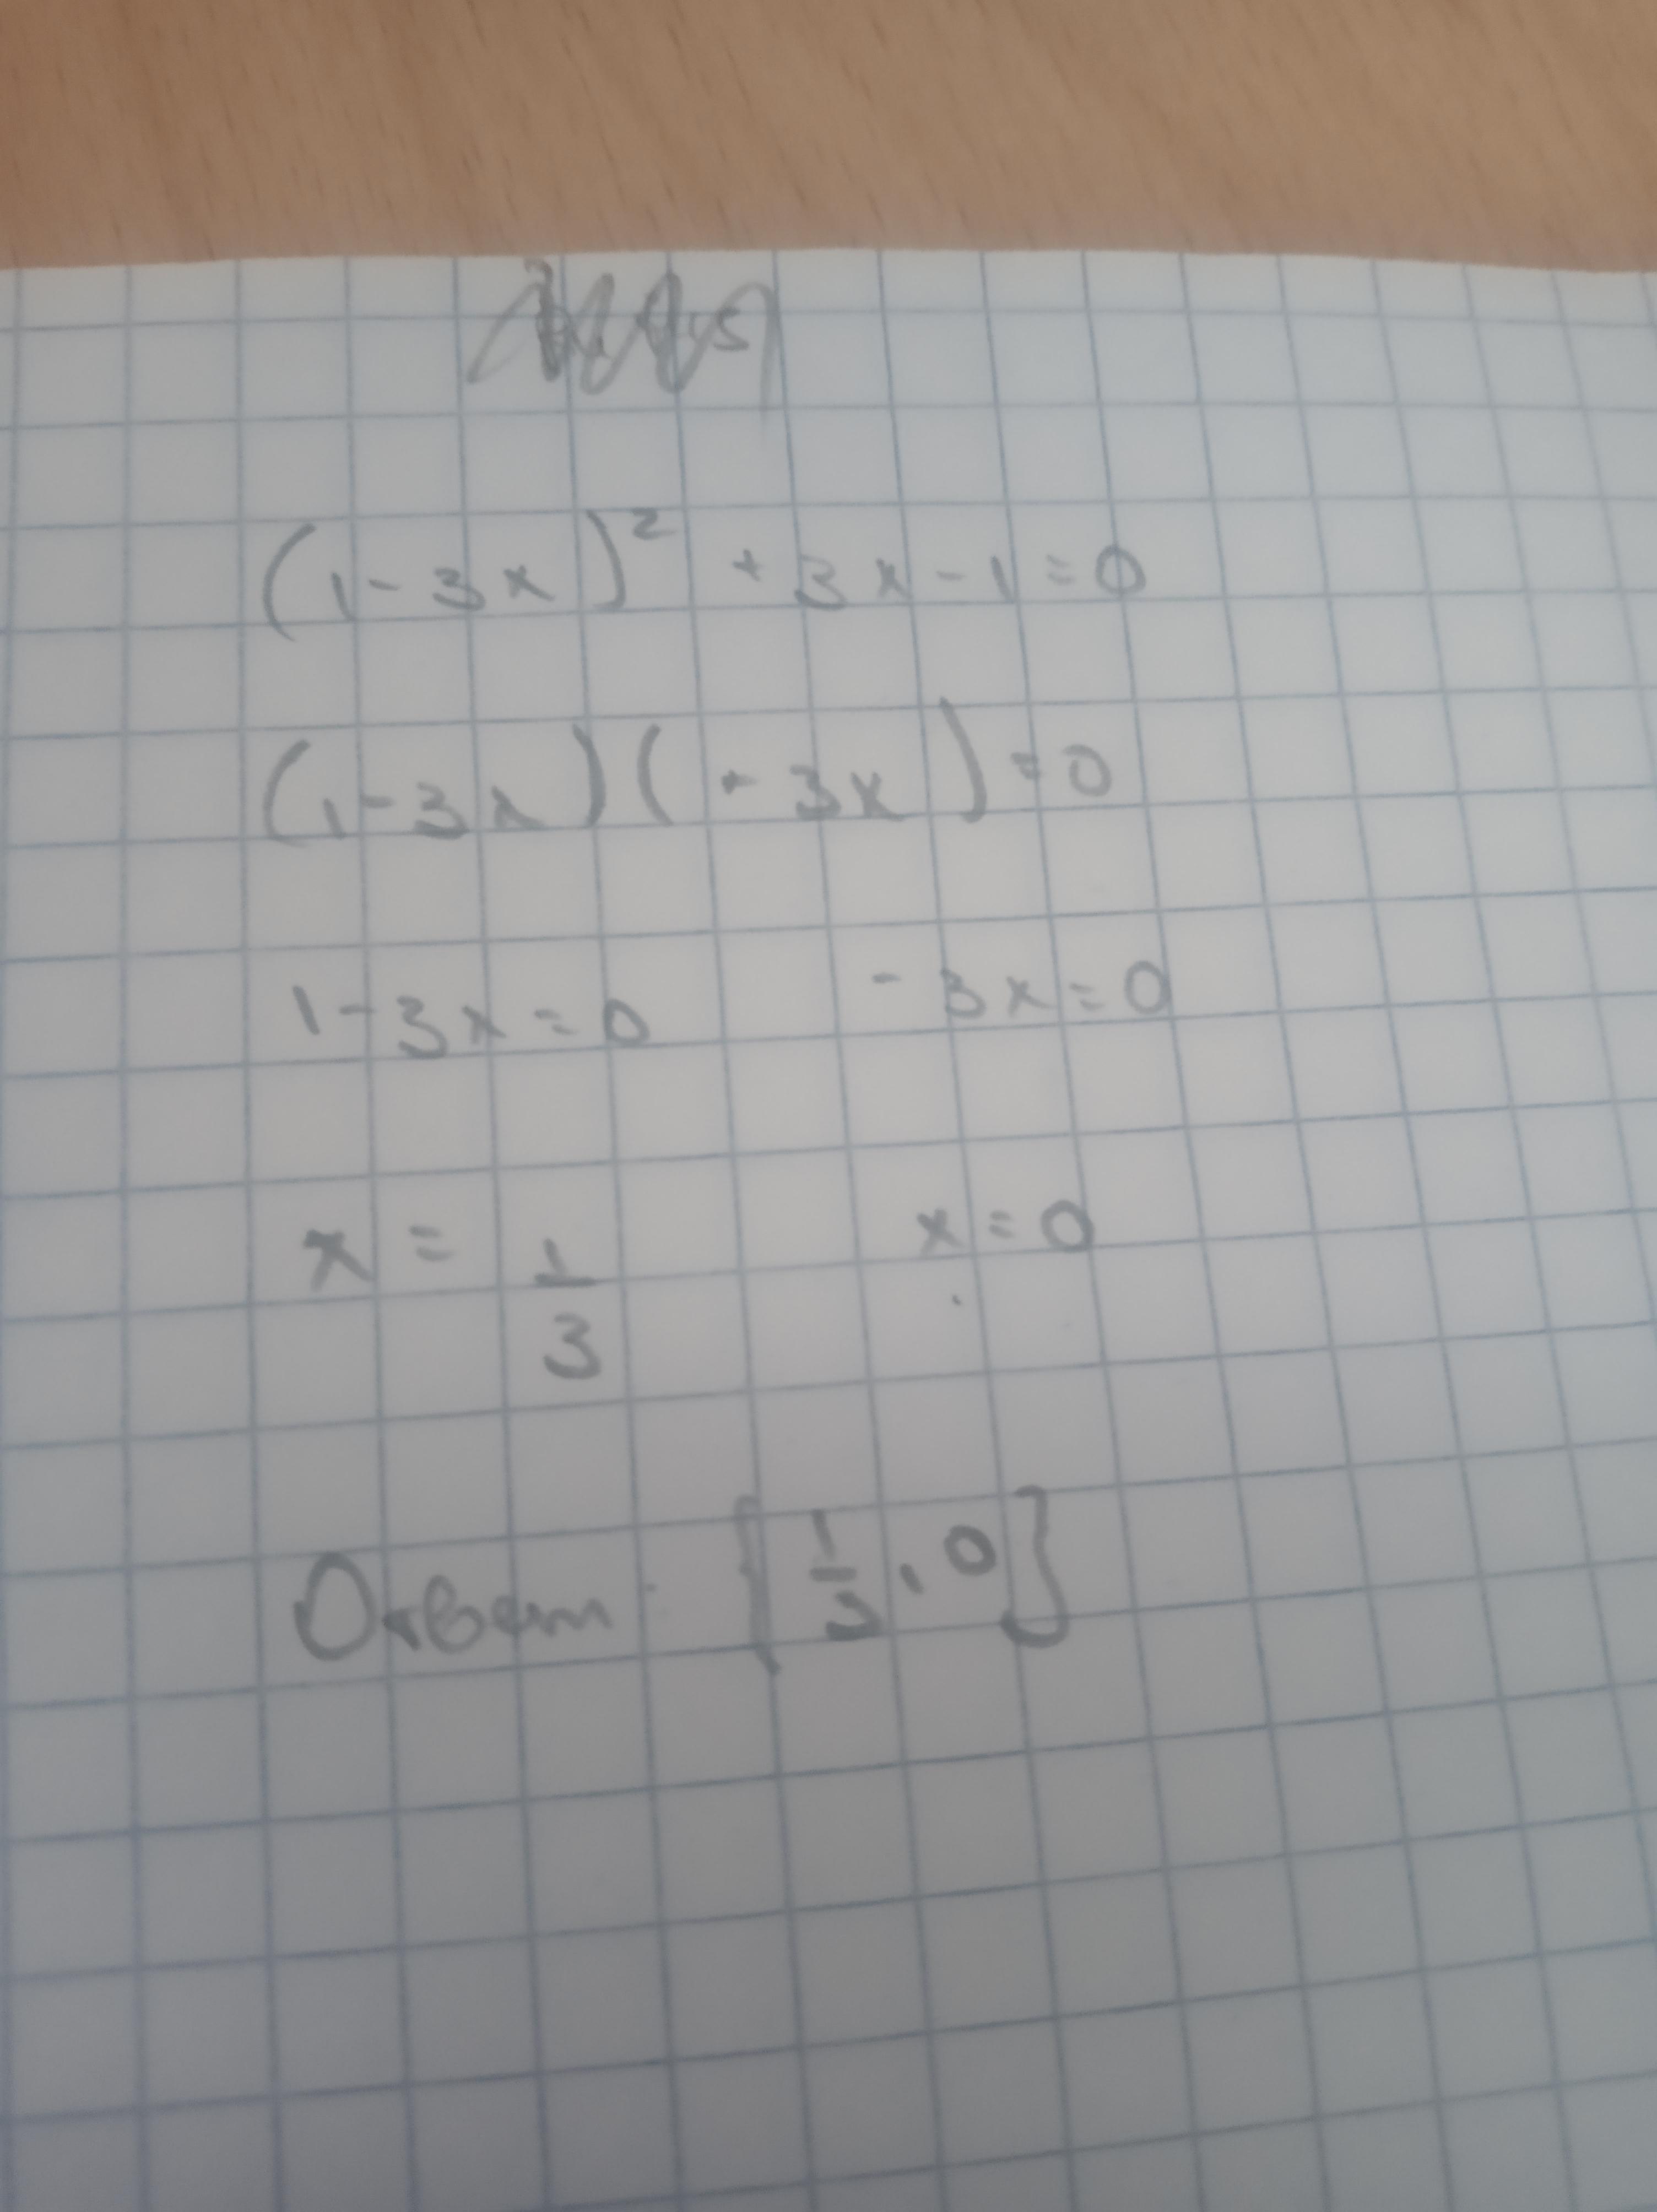 (1-3x)² + 3x-1=0
(1-3x)(-3x)=0
1-3x=0 -3x=0
x = 1/3 x=0
Ответ: {1/3, 0}